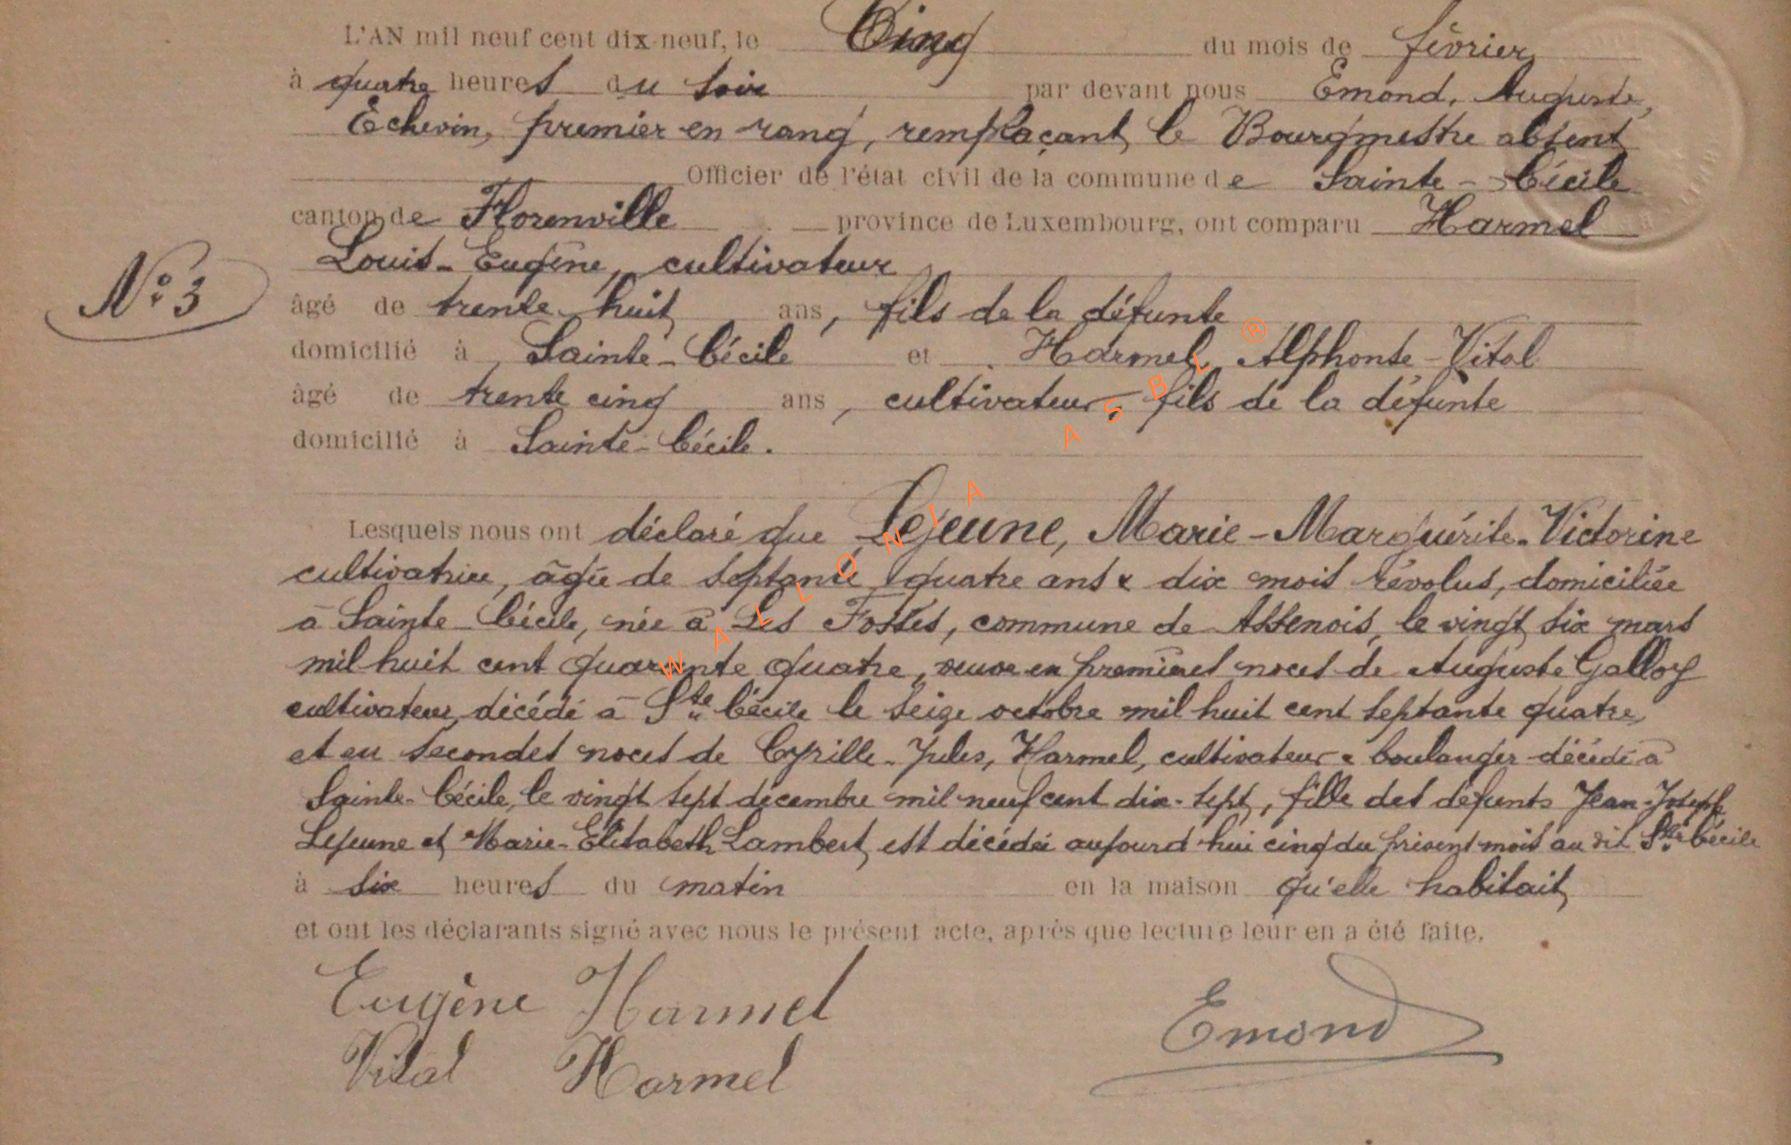 L'AN mil neuf cent dix-neuf, le Cinq du mois de février
à quatre heures du soir par devant nous Emond, Auguste,
Echevin, premier en rang, remplaçant le Bourgmestre absent
Officier de l'état civil de la commune de Sainte-Cécile
canton de Florenville province de Luxembourg, ont comparu Harmel
Louis-Eugène, cultivateur
N° 3
âgé de trente huit ans, fils de la défunte
domicilié à Sainte-Cécile et Harmel, Alphonse-Vital
âgé de trente cinq ans, cultivateur, fils de la défunte
domicilié à Sainte-Cécile.
Lesquels nous ont déclaré que Lejeune, Marie-Marguérite-Victorine
cultivatrice, âgée de septante quatre ans & dix mois révolus, domiciliée
à Sainte Cécile, née à Les Fossés, commune de Assenois, le vingt six mars
mil huit cent quarante quatre, veuve en premières noces de Auguste Galloy
cultivateur, décédé à Ste Cécile le seize octobre mil huit cent septante quatre,
et en secondes noces de Cyrille-Jules, Harmel, cultivateur & boulanger décédé à
Sainte-Cécile, le vingt sept décembre mil neuf cent dix-sept, fille des défunts Jean-Joseph
Lejeune et Marie-Elisabeth Lambert, est décédée aujourd'hui cinq du présent mois au dit Ste Cécile
à six heures du matin en la maison qu'elle habitait
et ont les déclarants signé avec nous le présent acte, après que lecture leur en a été faite.
Eugène Harmel
Emond
Vital Harmel
WALLONIA ASBL ®